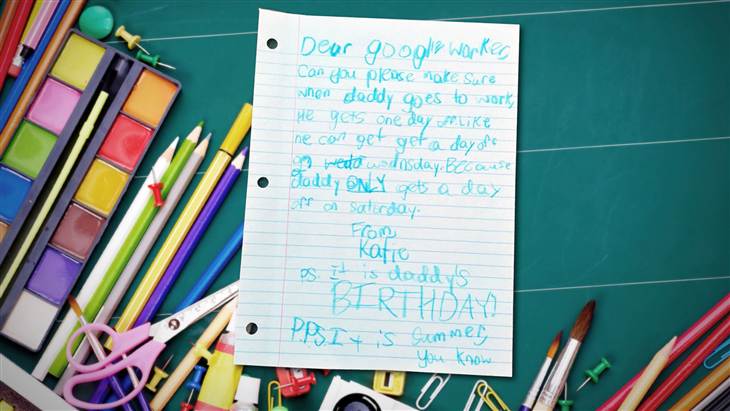 Dear google worker,
Can you please make sure
when daddy goes to work,
He gets one day off. Like
he can get get a day off
on wedn wednsday. Because
daddy ONLY gets a day
off on saturday.
From,
Katie
P.S. It is daddy's
BIRTHDAY!
P.P.S. It is summer,
you know